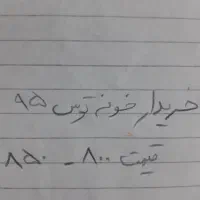 خریدار خونه توس ۹۵
قیمت ۸۰۰ - ۸۵۰